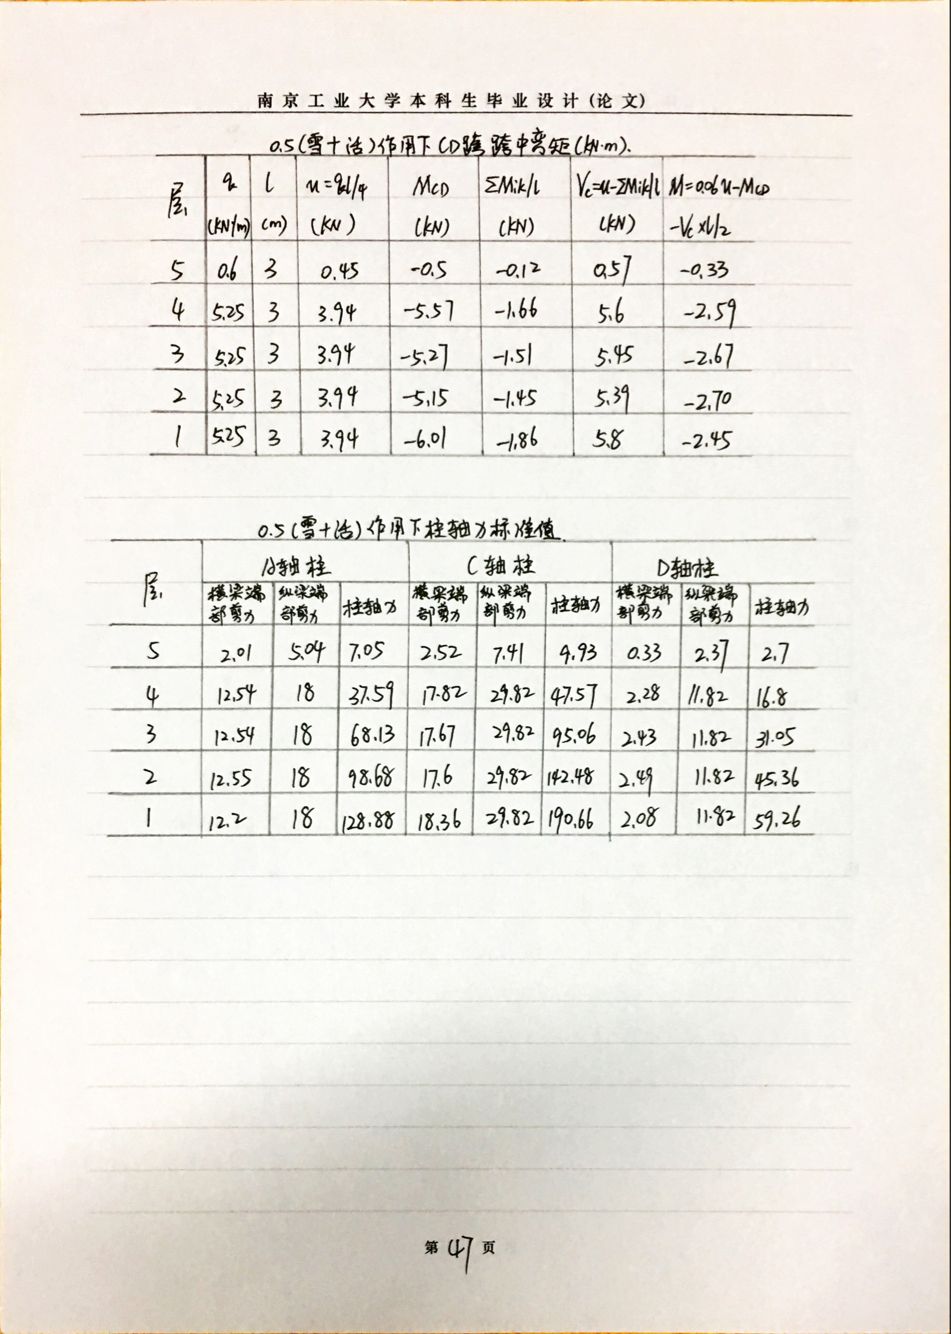 南京工业大学本科生毕业设计(论文)
0.5(雪+活)作用下CD跨跨中弯矩(kN·m).
层 q l u=ql/4 MCD ΣMik/l Vc=u-ΣMik/l M=0.06u-MCD
(KN/m) (m) (KN) (KN) (KN) (KN) -Vc×l/2
5 0.6 3 0.45 -0.5 -0.12 0.57 -0.33
4 5.25 3 3.94 -5.57 -1.66 5.6 -2.59
3 5.25 3 3.94 -5.27 -1.51 5.45 -2.67
2 5.25 3 3.94 -5.15 -1.45 5.39 -2.70
1 5.25 3 3.94 -6.01 -1.86 5.8 -2.45
0.5(雪+活)作用下柱轴力标准值
层 A轴柱 C轴柱 D轴柱
横梁端部剪力 纵梁端部剪力 柱轴力 横梁端部剪力 纵梁端部剪力 柱轴力 横梁端部剪力 纵梁端部剪力 柱轴力
5 2.01 5.04 7.05 2.52 7.41 9.93 0.33 2.37 2.7
4 12.54 18 37.59 17.82 29.82 47.57 2.28 11.82 16.8
3 12.54 18 68.13 17.67 29.82 95.06 2.43 11.82 31.05
2 12.55 18 98.68 17.6 29.82 142.48 2.49 11.82 45.36
1 12.2 18 128.88 18.36 29.82 190.66 2.08 11.82 59.26
第47页